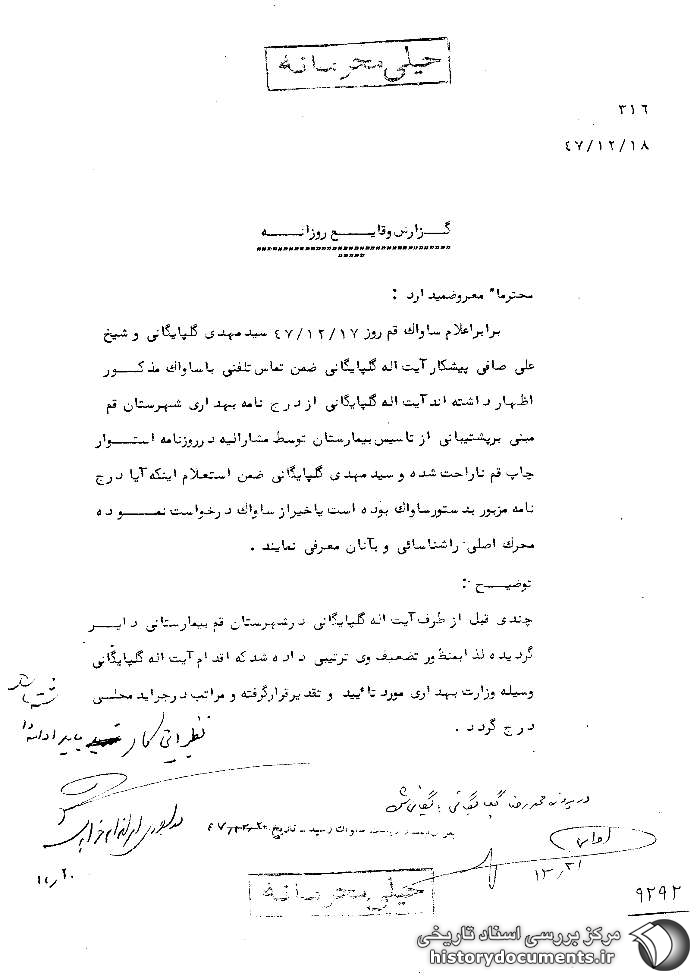 خیلی محرمانه
۳۱۶
۴۷/۱۲/۱۸
گزارش وقایع روزانه
محترما" معروضمیدارد :
برابراعلام ساواك قم روز ۴۷/۱۲/۱۷ سید مهدی گلپایگانی و شیخ
علی صافی پیشکار آیت اله گلپایگانی ضمن تماس تلفنی باساواك مذکور
اظهار داشته اند آیت اله گلپایگانی از درج نامه بهداری شهرستان قم
مبنی برپشتیبانی از تاسیس بیمارستان توسط مشارالیه درروزنامه استوار
چاپ قم ناراحت شده و سید مهدی گلپایگانی ضمن استعلام اینکه آیا درج
نامه مزبور بدستور ساواك بوده است یاخیر از ساواك درخواست نموده
محرك اصلی راشناسائی و بآنان معرفی نمایند .
توضیح :
چندی قبل از طرف آیت اله گلپایگانی درشهرستان قم بیمارستانی دایر
گردیده لذا بمنظور تضعیف وی ترتیبی داده شد که اقدام آیت اله گلپایگانی
وسیله وزارت بهداری مورد تائید و تقدیر قرارگرفته و مراتب درجراید محلی
درج گردد .
نظیر این کار باید ادامه
در پرونده محمدرضا گلپایگانی بایگانی شود
ریاست ساواك رسید - تاریخ
۱۲/۲۰
۱۲/۲۱
خیلی محرمانه
۹۲۹۲
مرکز بررسی اسناد تاریخی
historydocuments.ir